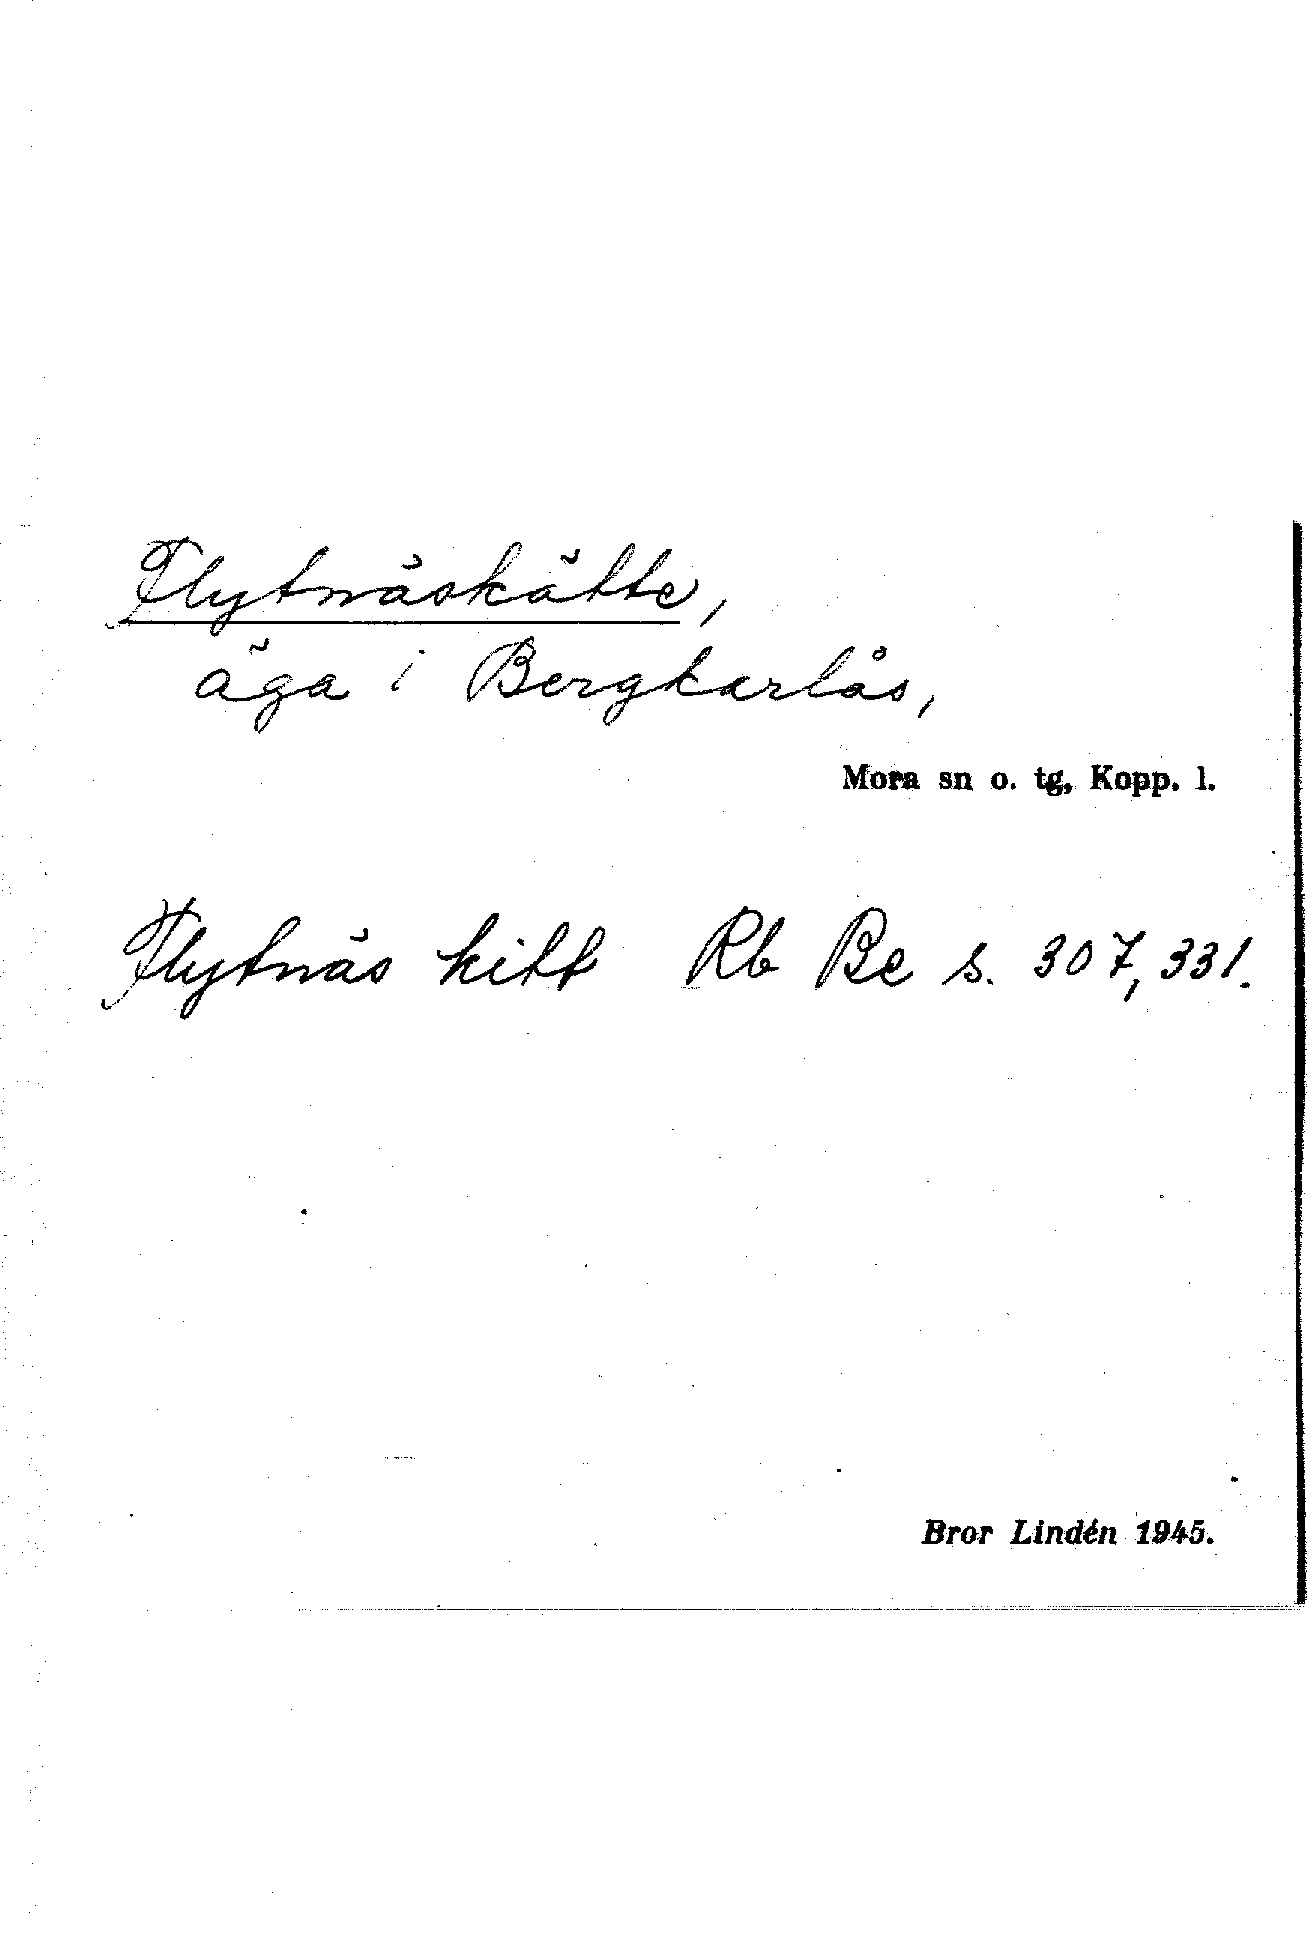 Flytnäskätte,
äga i Bergkarlås,
Mora sn o. tg, Kopp. l.
Flytnäs kitt Rb Be s. 307, 331.
Bror Lindén 1945.